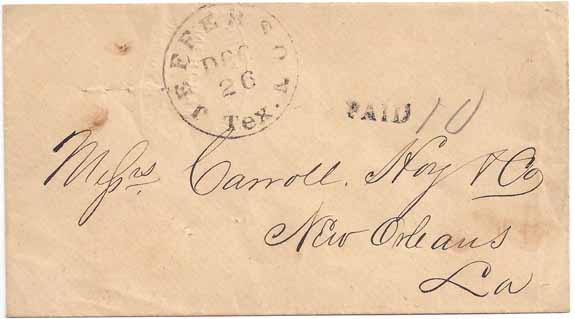 JEFFERSON
DEC
26
Tex.
PAID 10
Messrs Carroll, Hoy & Co
New Orleans
La